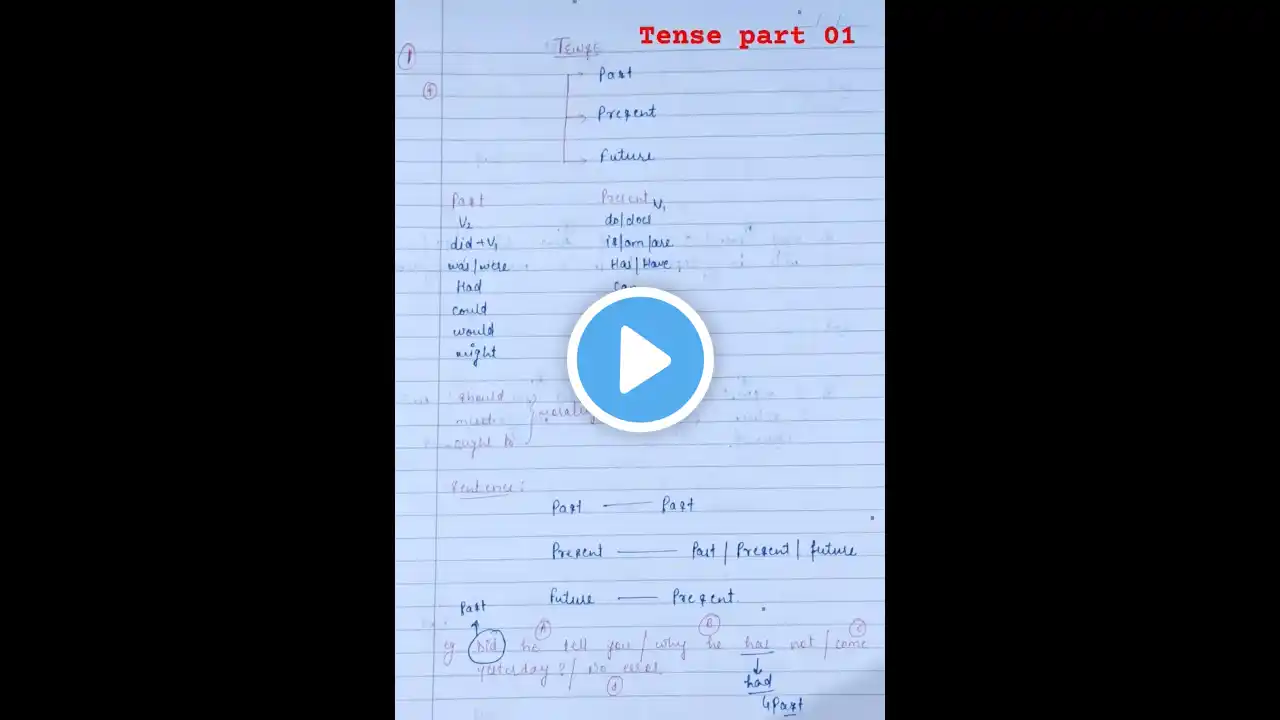 Tense part 01
1
Tense
Past
4
Present
Future
Past Present V₁
V₂ do/does
did + V₁ is/am/are
was/were Has/Have
Had Can
could
would
might
should
must
ought to
Sentence:
Past — Past
Present — Past / Present / future
Future — Present
Past
A B C
eg Did he tell you / why he has not / come
yesterday? / No error
d had
↳ Past